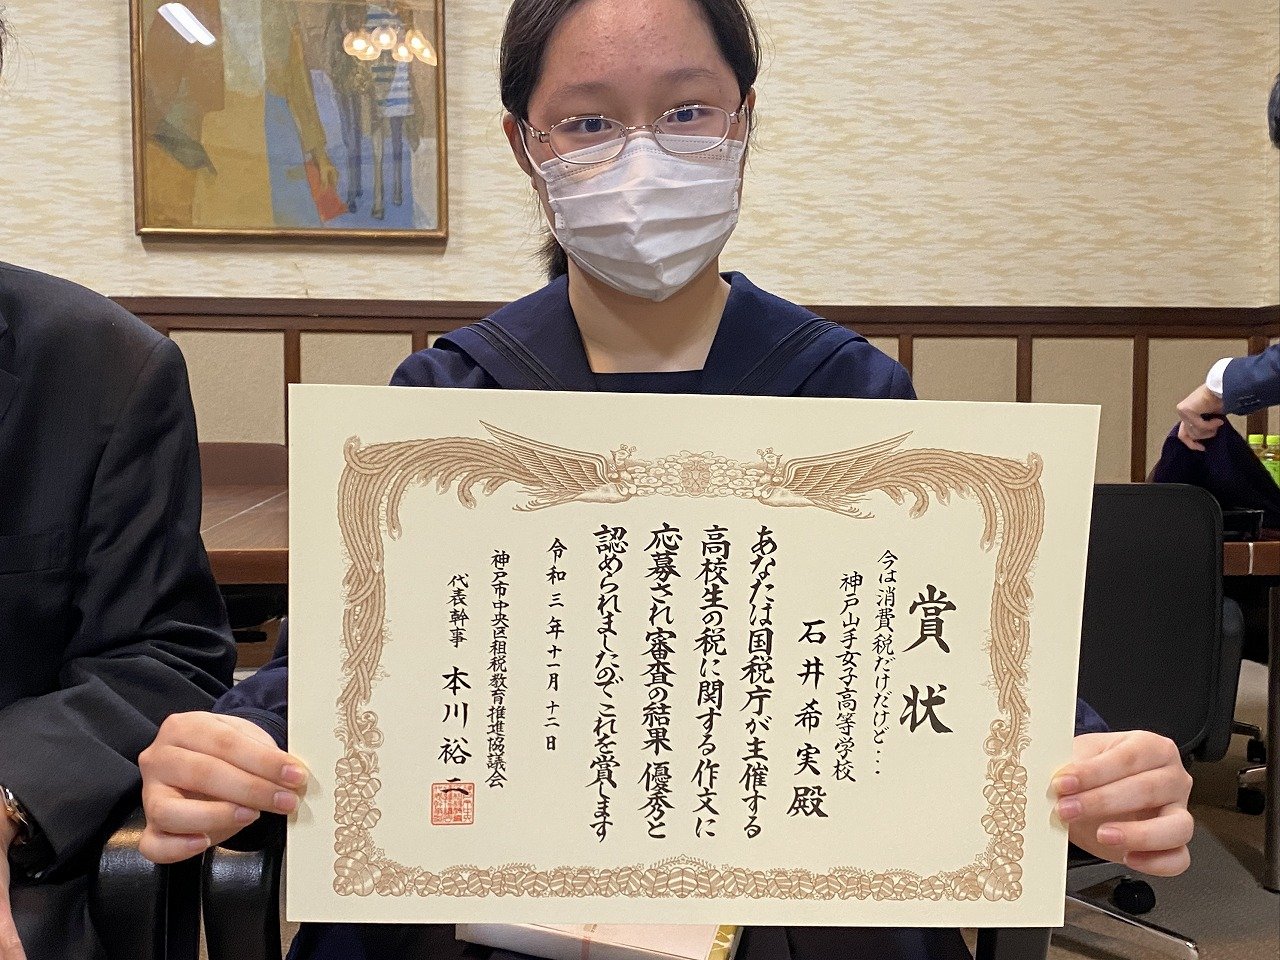 賞状
今は消費税だけだけど...
神戸山手女子高等学校
石井希実殿
あなたは国税庁が主催する
高校生の税に関する作文に
応募され審査の結果優秀と
認められましたのでこれを賞します
令和三年十一月十二日
神戸市中央区租税教育推進協議会
代表幹事 本川裕二